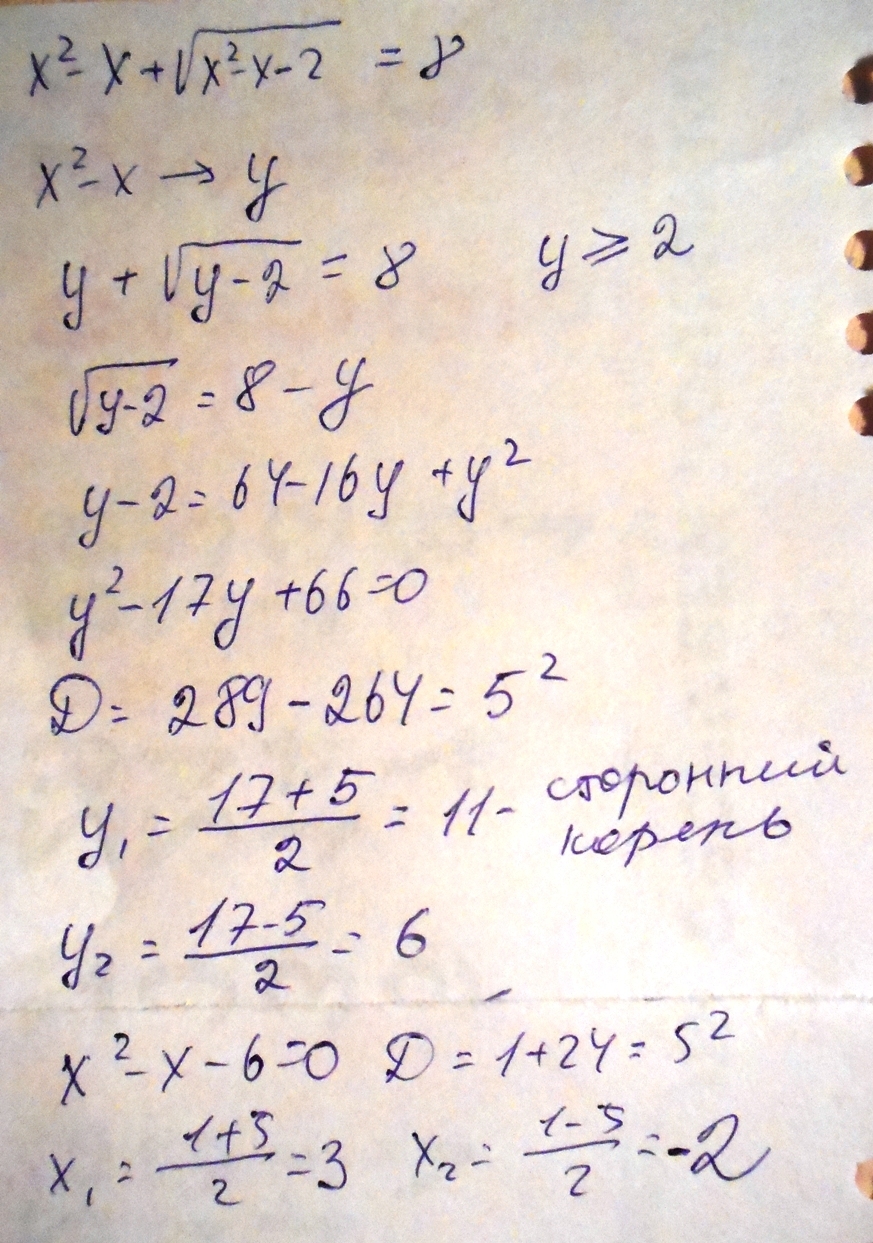 x² - x + √(x² - x - 2) = 8
x² - x → y
y + √(y - 2) = 8 y ⩾ 2
√(y - 2) = 8 - y
y - 2 = 64 - 16y + y²
y² - 17y + 66 = 0
D = 289 - 264 = 5²
y₁ = (17 + 5)/2 = 11 - сторонний корень
y₂ = (17 - 5)/2 = 6
x² - x - 6 = 0 D = 1 + 24 = 5²
x₁ = (1 + 5)/2 = 3 x₂ = (1 - 5)/2 = -2